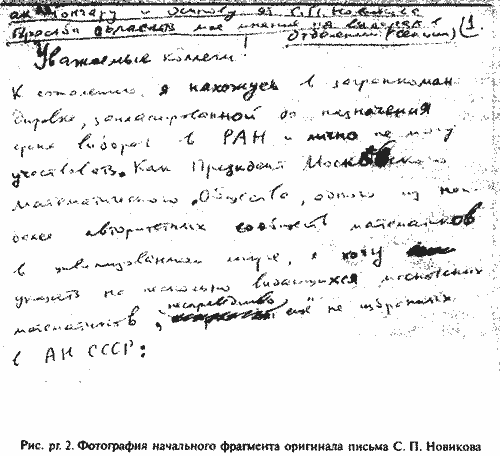 ак. Гончару и Осипову от С.П. Новикова
Просьба огласить мое мнение на выборах в
Отделении (секции) (1.
Уважаемые коллеги!
К сожалению, я нахожусь в загранкоман
дировке, запланированной до назначения
срока выборов в РАН и лично не могу
участвовать. Как Президент Московского
математического Общества, одного из наи
более авторитетных сообществ математиков
в цивилизованном мире, я хочу
указать на несколько выдающихся московских
математиков, несправедливо ещё не избранных
в АН СССР:
Рис. pr. 2. Фотография начального фрагмента оригинала письма С. П. Новикова